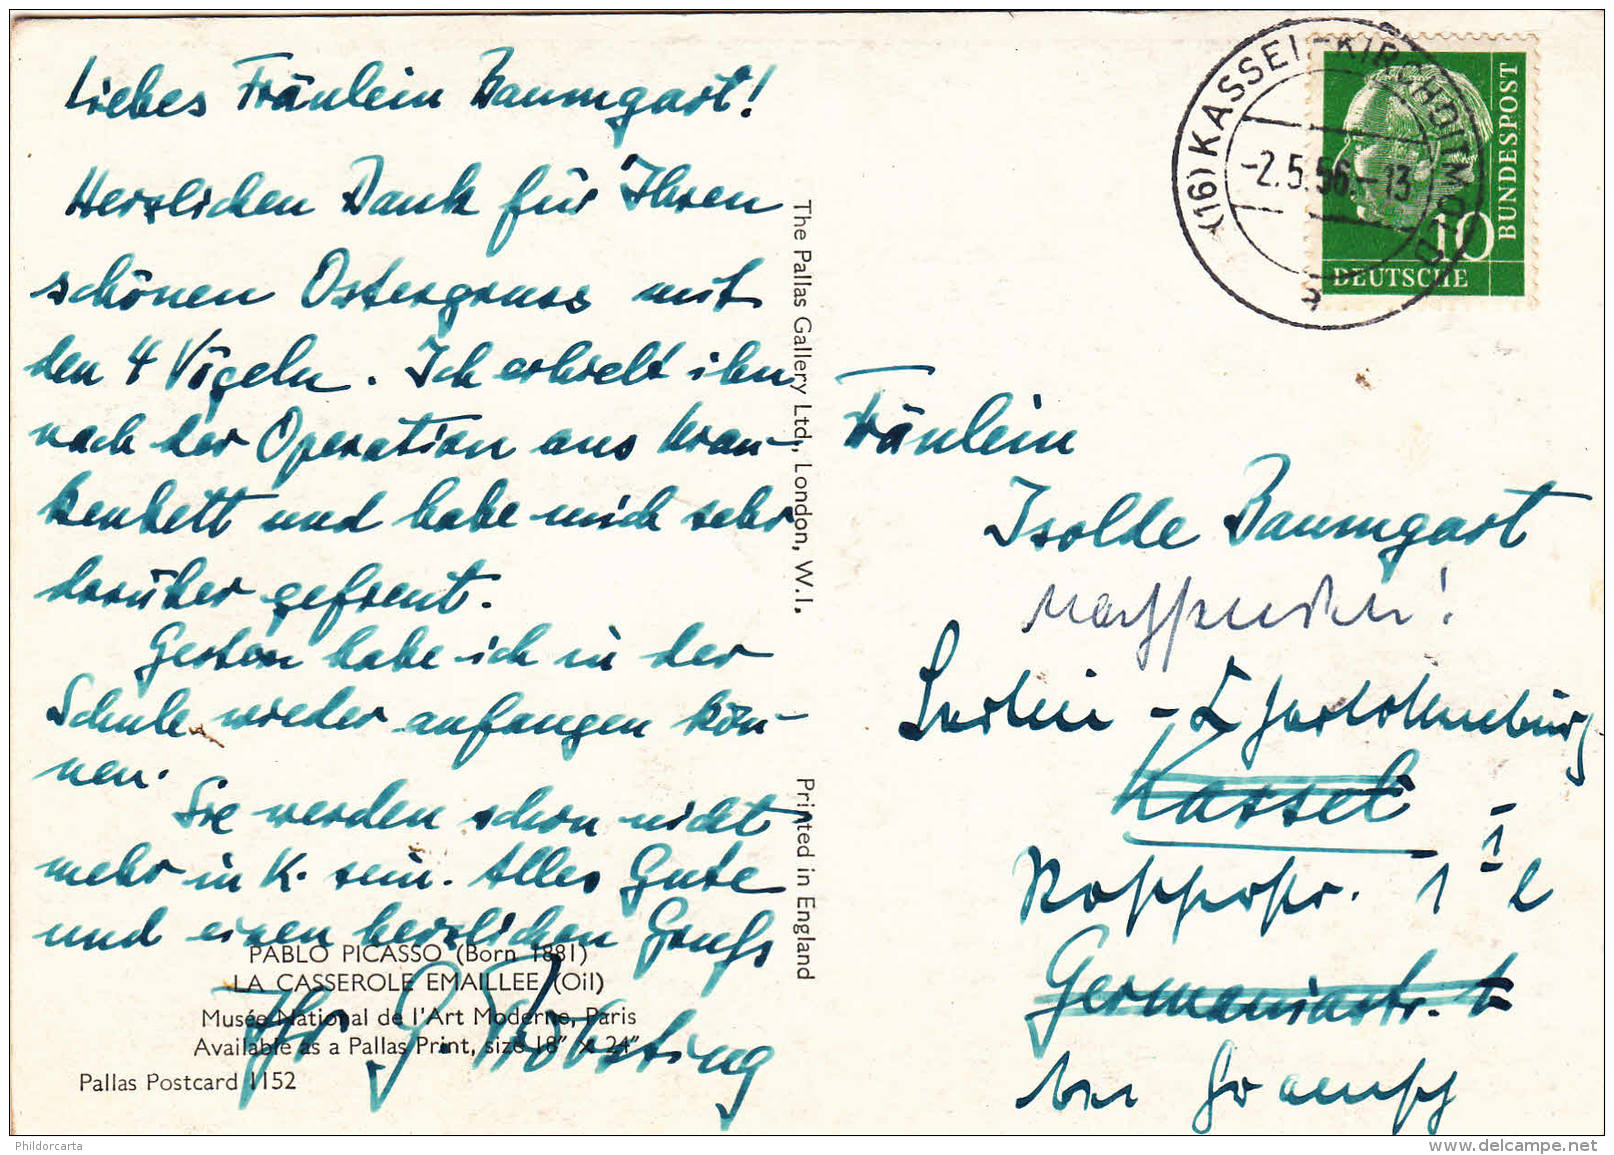 Liebes Fräulein Baumgart!
Herzlichen Dank für Ihren
schönen Ostergruss mit
den 4 Vögeln. Ich erhielt ihn
nach der Operation aus Kran-
kenbett und habe mich sehr
darüber gefreut.
Gestern habe ich in der
Schule wieder anfangen kön-
nen.
Sie werden schon nicht
mehr in K. sein. Alles Gute
und einen herzlichen Gruß
Ihr G.
PABLO PICASSO (Born 1881)
LA CASSEROLE EMAILLEE (Oil)
Musée National de l'Art Moderne, Paris
Available as a Pallas Print, size 18" x 24"
Pallas Postcard 1152
The Pallas Gallery Ltd, London, W.I.
Printed in England
(16) KASSEL-KIRCHDITMOLD
-2.5.56.-13
a
BUNDESPOST
10
DEUTSCHE
Fräulein
Isolde Baumgart
nachsenden!
Berlin - Charlottenburg
Kassel
1
Germaniastr.
bei
Phildorcarta
www.delcampe.net